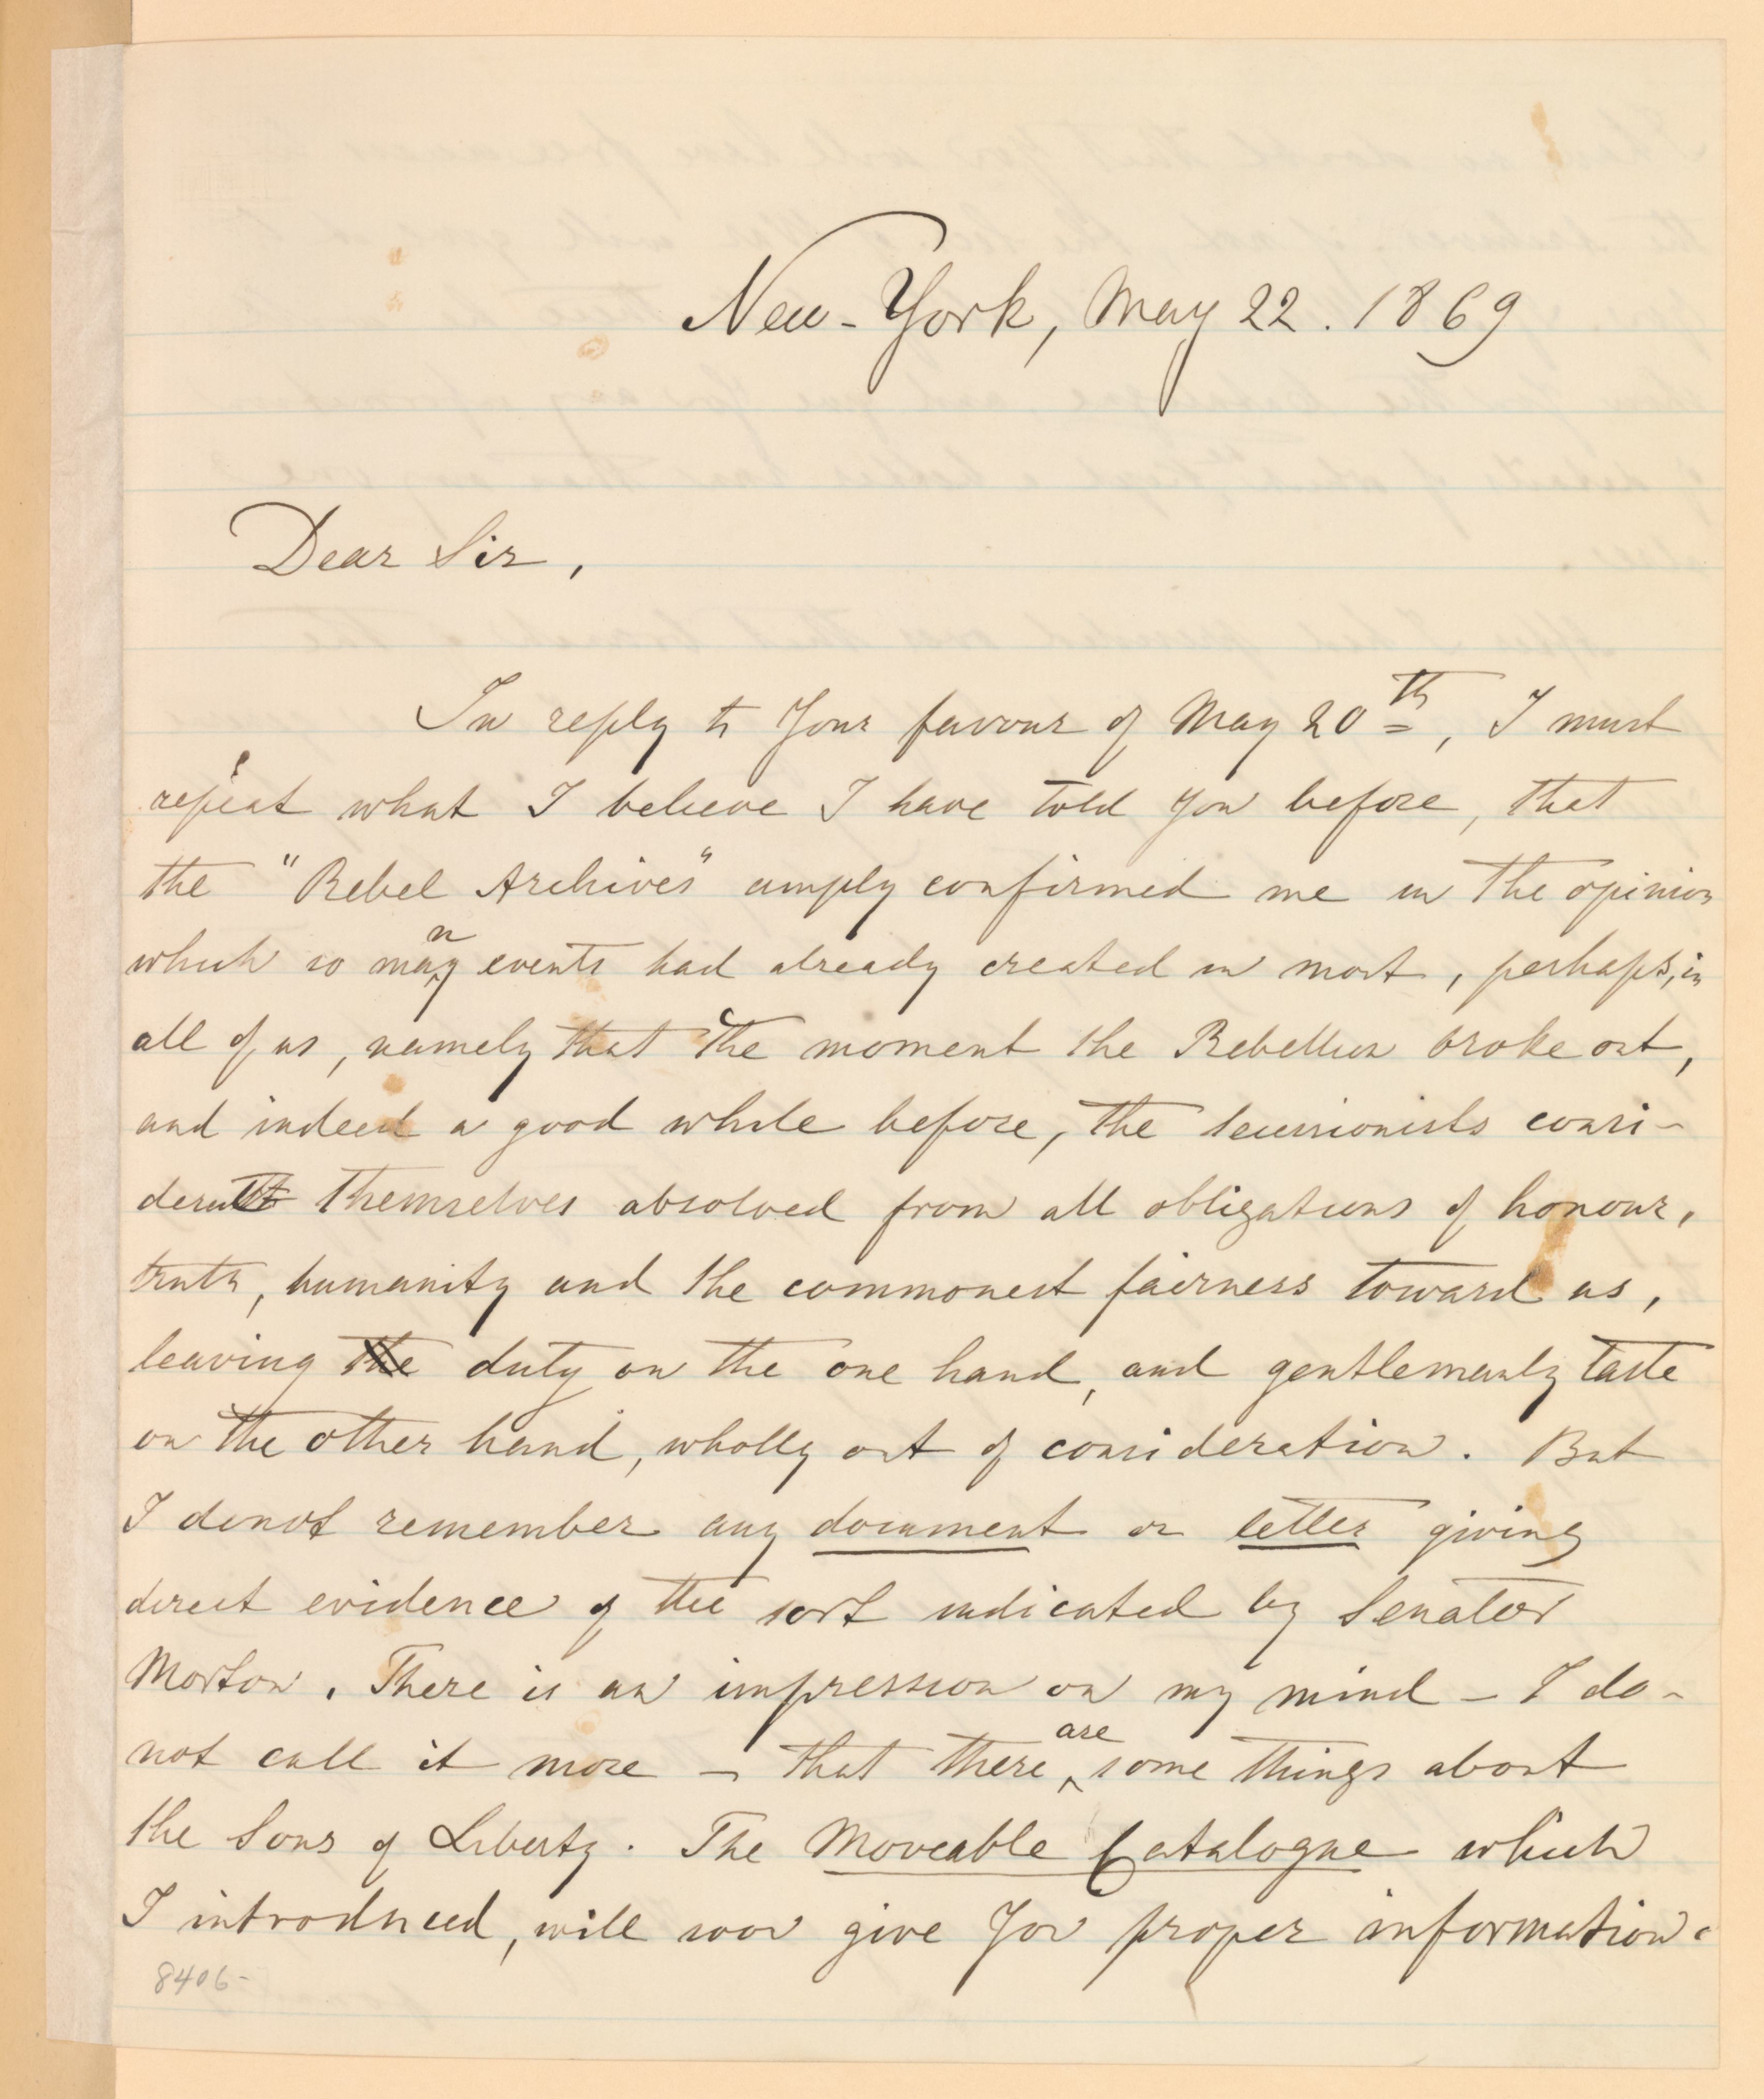 New-York, May 22. 1869
Dear Sir,
In reply to Your favour of May 20th, I must
repeat what I believe I have told You before, that
the "Rebel Archives" amply confirmed me in the opinion
which so many events had already created in most, perhaps, in
all of us, namely that the moment the Rebellion broke out,
and indeed a good while before, the secessionists consi-
dered themselves absolved from all obligations of honour,
truth, humanity and the commonest fairness toward us,
leaving the duty on the one hand, and gentlemanly taste
on the other hand, wholly out of consideration. But
I donot remember any document or letter giving
direct evidence of the sort indicated by Senator
Morton. There is an impression on my mind – I do-
not call it more – that there are some things about
the Sons of Liberty. The Moveable Catalogue which
I introduced, will soon give You proper information.
8406-